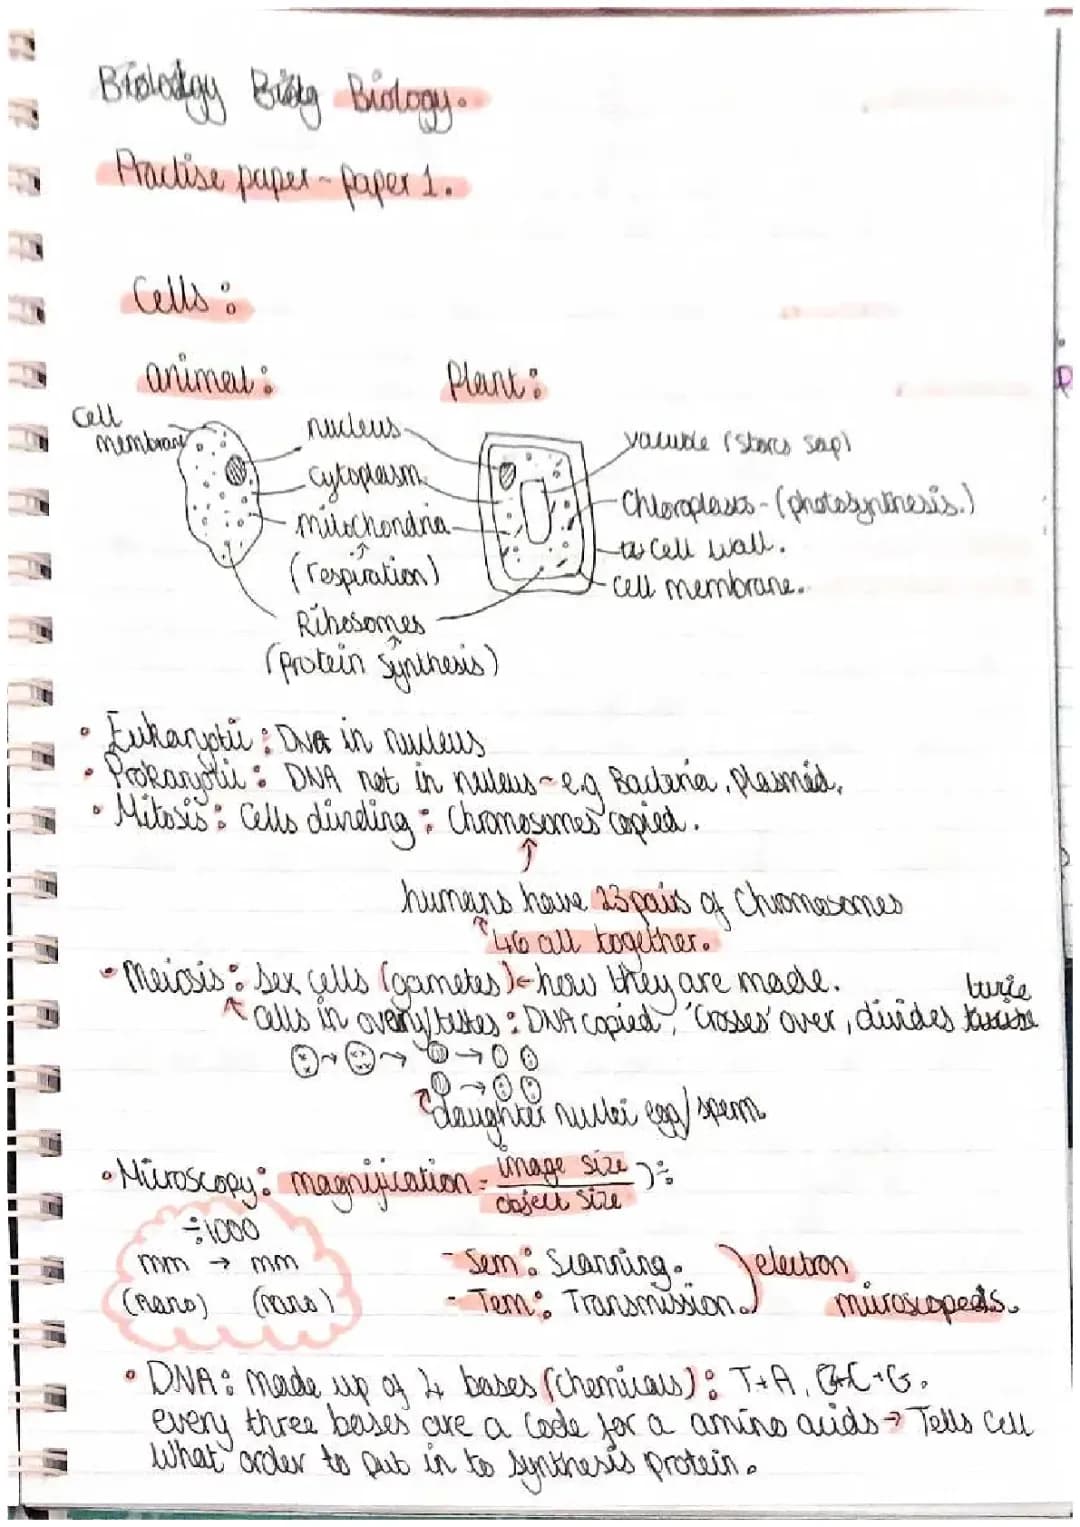 Biology Biolg Biology.
Practise paper - paper 1.
Cells:
animal: Plant:
Cell membrane
nucleus
cytoplasm
mitochondria
(respiration)
Ribosomes
(protein synthesis)
vacuole (stores sap)
Chloroplasts - (photosynthesis.)
cell wall.
cell membrane.
• Eukaryotic: DNA in nucleus
• Prokaryotic: DNA not in nucleus - e.g Bacteria, plasmid.
• Mitosis: Cells dividing: Chromosomes copied.
↑
humans have 23 pairs of Chromosomes
↑ 46 all together.
• Meiosis: Sex cells (gametes) ← how they are made.
↑ cells in ovary/testes: DNA copied, 'Crosses' over, divides twice
daughter nuclei egg/sperm
• Microscopy: magnification = image size / object size ) ÷
÷1000
mm → mm
(nano) (nano)
- Sem: Scanning.
- Tem: Transmission.
electron microscopes.
• DNA: made up of 4 bases (chemicals): T+A, C+G.
every three bases are a code for a amino acids → Tells cell
What order to put in to synthesis protein.